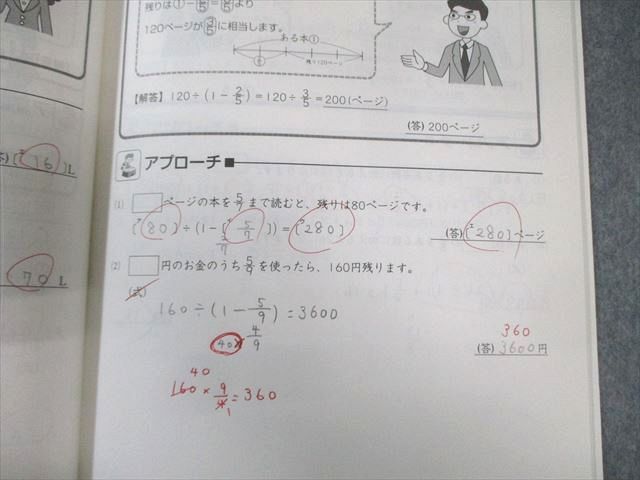 残りは①-②/5=③/5より
120ページが③/5に相当します。
ある本①
残り120ページ
【解答】120÷(1-2/5)=120÷3/5=200(ページ)
(答)200ページ
アプローチ
16]L
70 L
(1) □ページの本を5/7まで読むと、残りは80ページです。
[80]÷(1-[5/7])=[280]
2/7
(答)[280]ページ
(2) □円のお金のうち5/9を使ったら、160円残ります。
(式)
160÷(1-5/9)=3600
40
4/9
360
(答)3600円
40
160×9/4=360
1